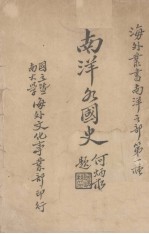 海外叢書南洋之部第一種
南洋各國史
何炳松題
國立暨南大學海外文化事業部印行